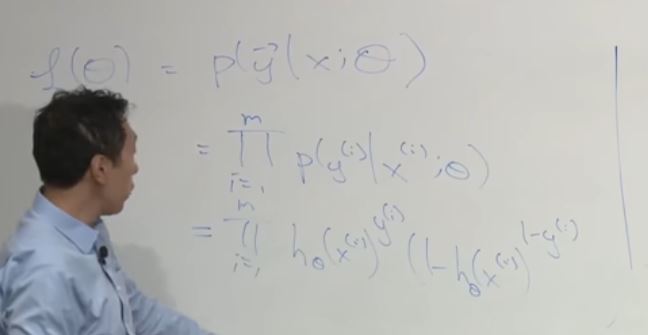 ℒ(θ) = p(y⃗ | x; θ)
= ∏_{i=1}^{m} p(y^{(i)} | x^{(i)}; θ)
= ∏_{i=1}^{m} h_θ(x^{(i)})^{y^{(i)}} (1 - h_θ(x^{(i)})^{1-y^{(i)}}